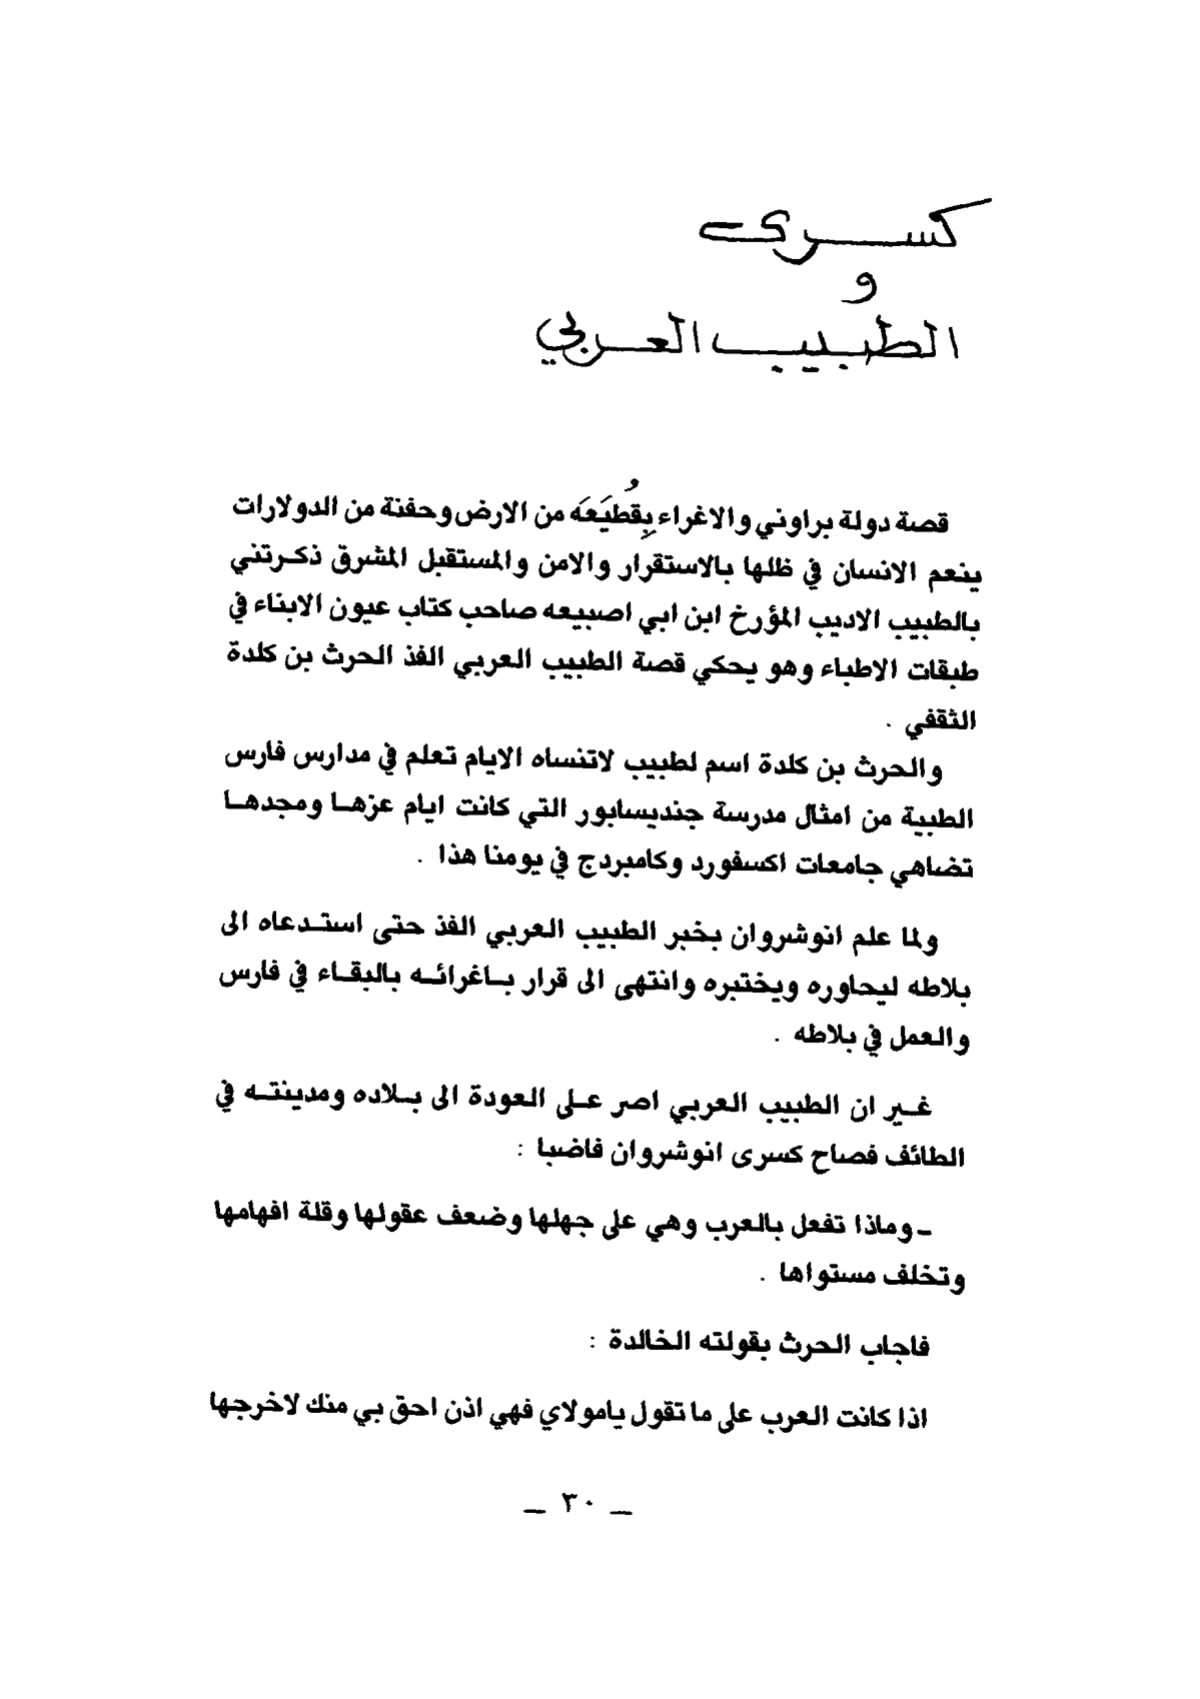 كسرى
و
الطبيب العربي
قصة دولة براوني والاغراء بِقُطَيعَه من الارض وحفنة من الدولارات
ينعم الانسان في ظلها بالاستقرار والامن والمستقبل المشرق ذكرتني
بالطبيب الاديب المؤرخ ابن ابي اصبيعه صاحب كتاب عيون الابناء في
طبقات الاطباء وهو يحكي قصة الطبيب العربي الفذ الحرث بن كلدة
الثقفي .
والحرث بن كلدة اسم لطبيب لاتنساه الايام تعلم في مدارس فارس
الطبية من امثال مدرسة جنديسابور التي كانت ايام عزها ومجدها
تضاهي جامعات اكسفورد وكامبردج في يومنا هذا .
ولما علم انوشروان بخبر الطبيب العربي الفذ حتى استدعاه الى
بلاطه ليحاوره ويختبره وانتهى الى قرار باغرائه بالبقاء في فارس
والعمل في بلاطه .
غير ان الطبيب العربي اصر على العودة الى بلاده ومدينته في
الطائف فصاح كسرى انوشروان فاضبا :
ـ وماذا تفعل بالعرب وهي على جهلها وضعف عقولها وقلة افهامها
وتخلف مستواها .
فاجاب الحرث بقولته الخالدة :
اذا كانت العرب على ما تقول يامولاي فهي اذن احق بي منك لاخرجها
ـ ٣٠ ـ